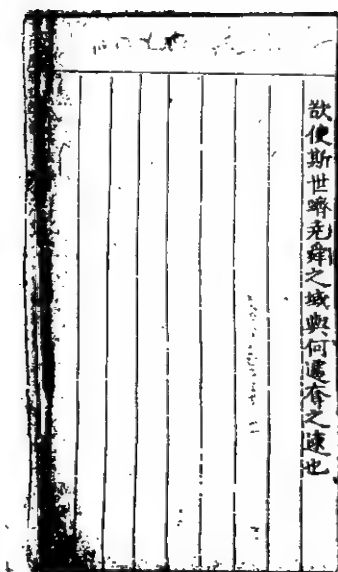 欲使斯世躋堯舜之域歟何遽奪之速也